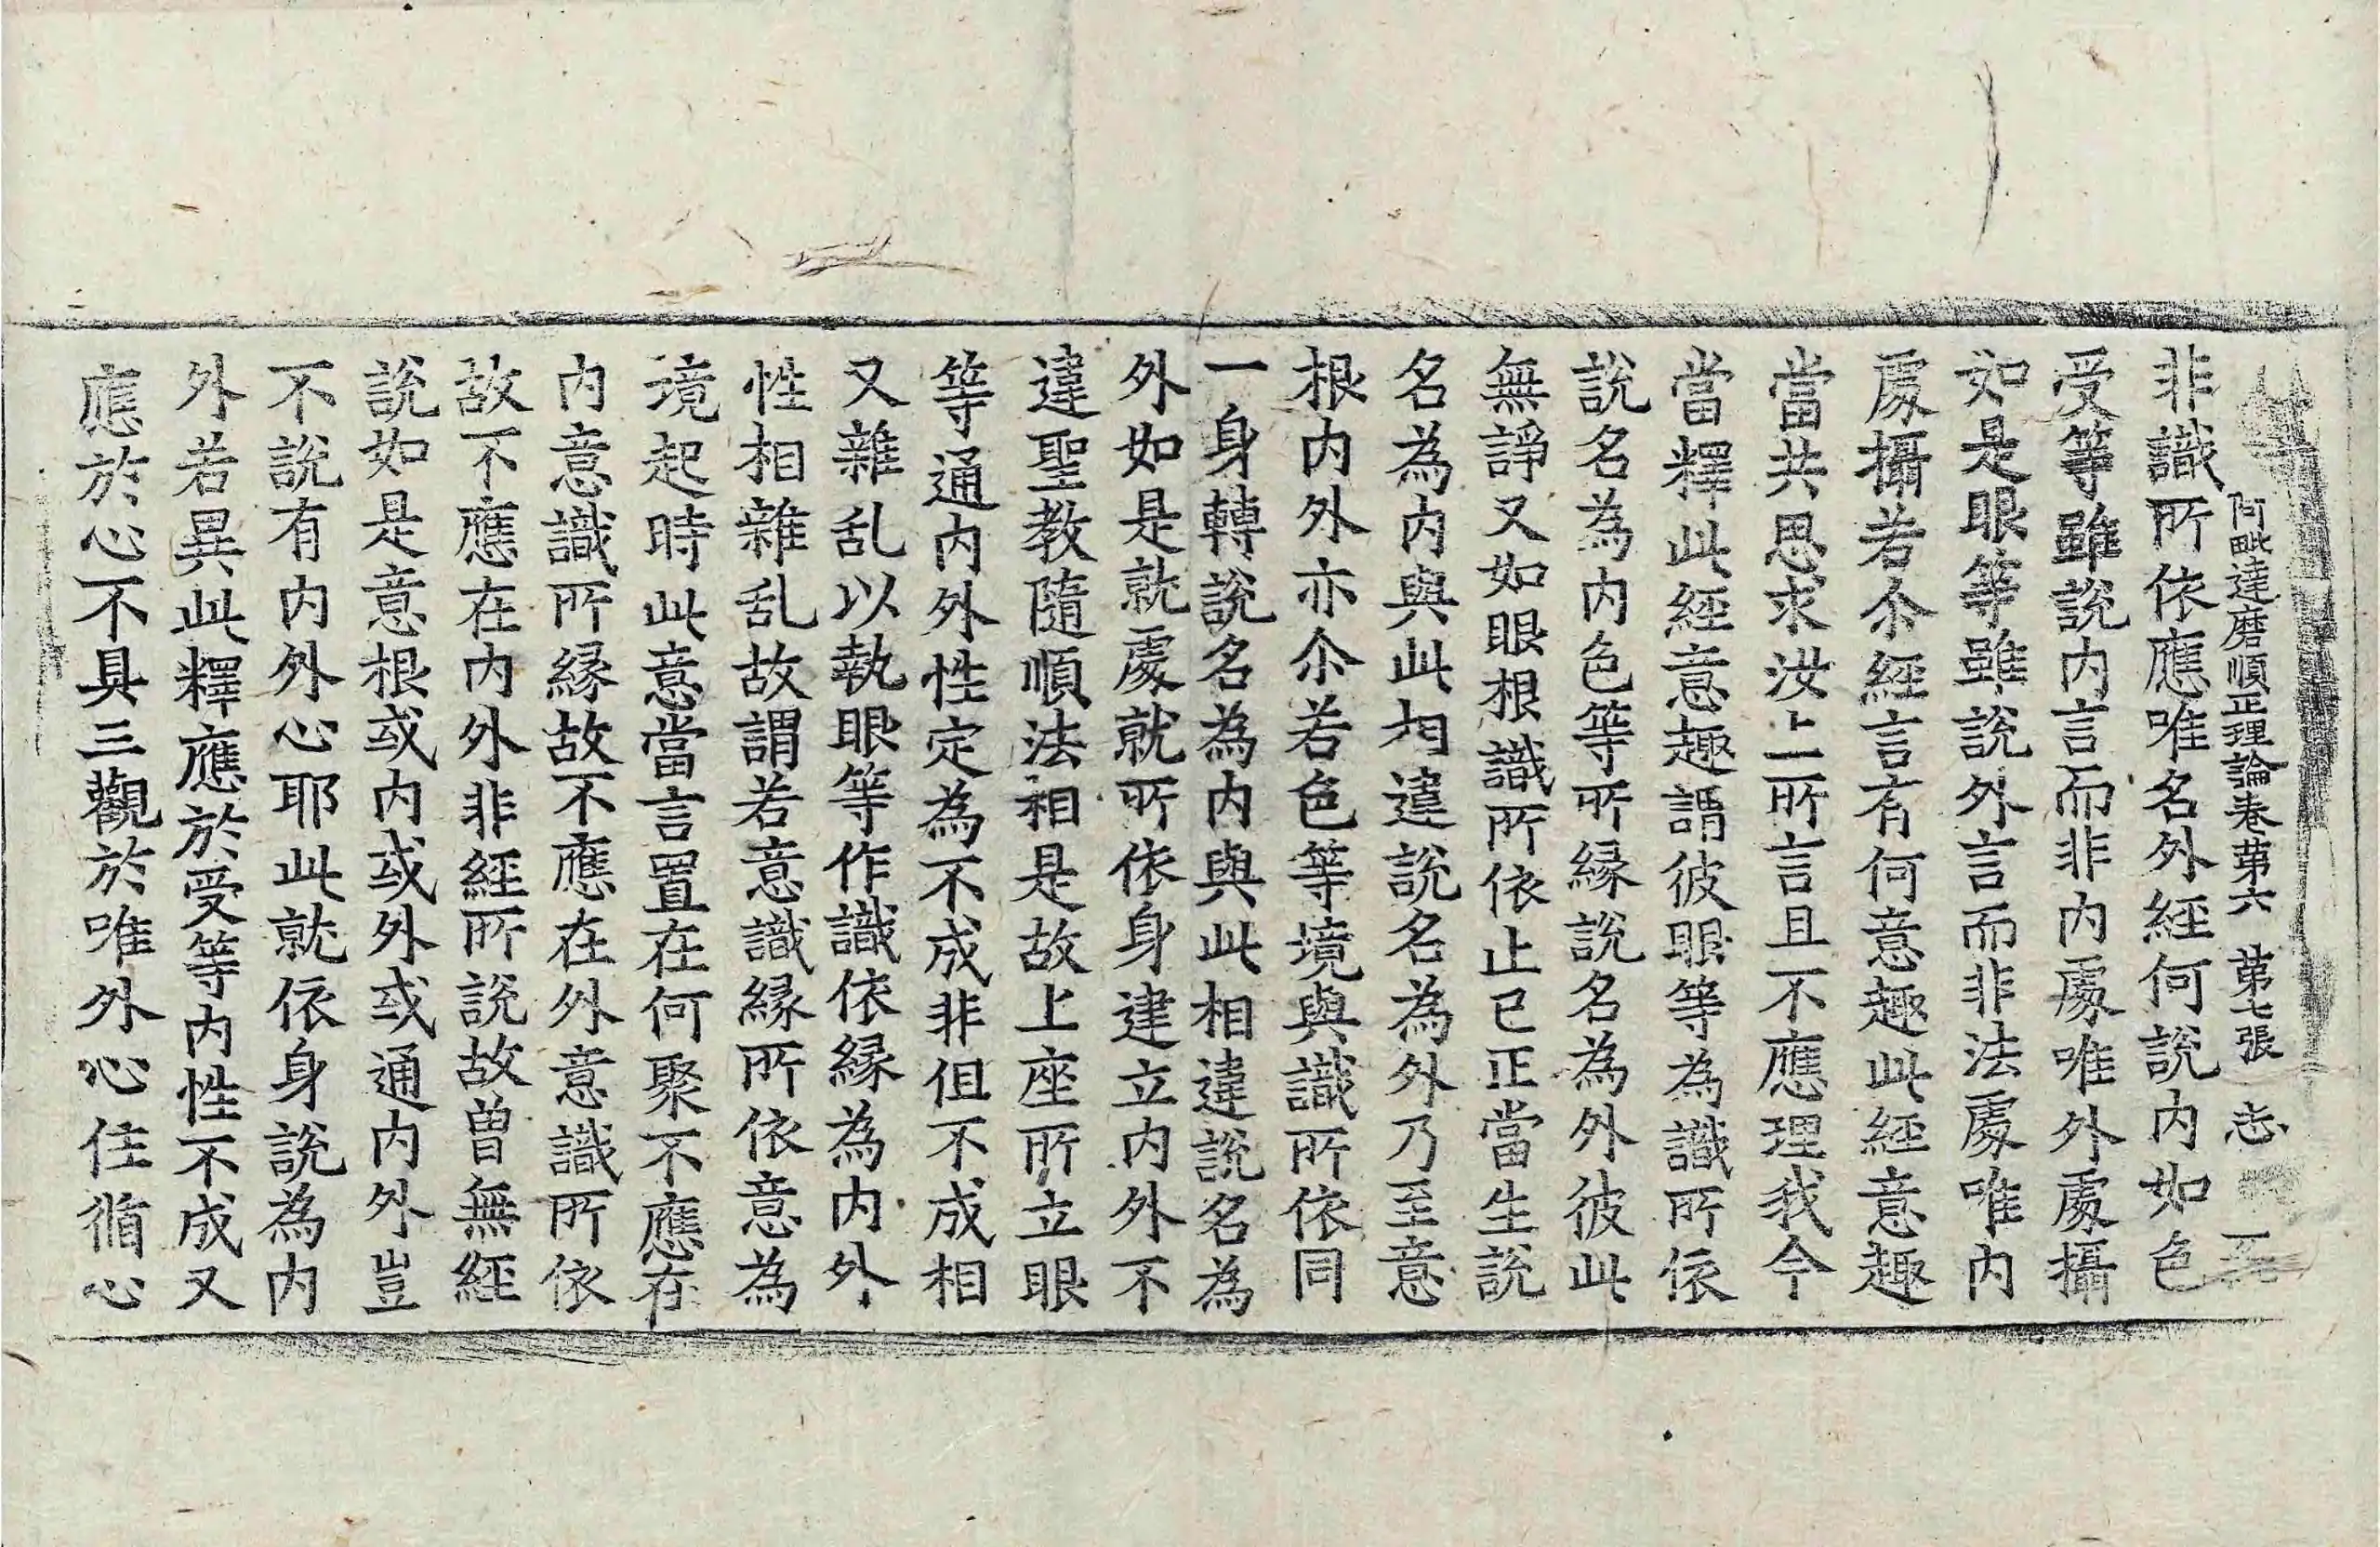 阿毗達磨順正理論卷第六 第七張 志
非識所依應唯名外經何說內如色
受等雖說內言而非內處唯外處攝
如是眼等雖說外言而非法處唯內
處攝若尒經言有何意趣此經意趣
當共思求汝上所言且不應理我今
當釋此經意趣謂彼眼等為識所依
說名為內色等所緣說名為外彼此
無諍又如眼根識所依止已正當生說
名為內與此相違說名為外乃至意
根內外亦尒若色等境與識所依同
一身轉說名為內與此相違說名為
外如是就處就所依身建立內外不
違聖教隨順法相是故上座所立眼
等通內外性定為不成非但不成相
又雜乱以執眼等作識依緣為內外
性相雜乱故謂若意識緣所依意為
境起時此意當言置在何聚不應在
內意識所緣故不應在外意識所依
故不應在內外非經所說故曾無經
說如是意根或內或外或通內外豈
不說有內外心耶此就依身說為內
外若異此釋應於受等內性不成又
應於心不具三觀於唯外心住循心